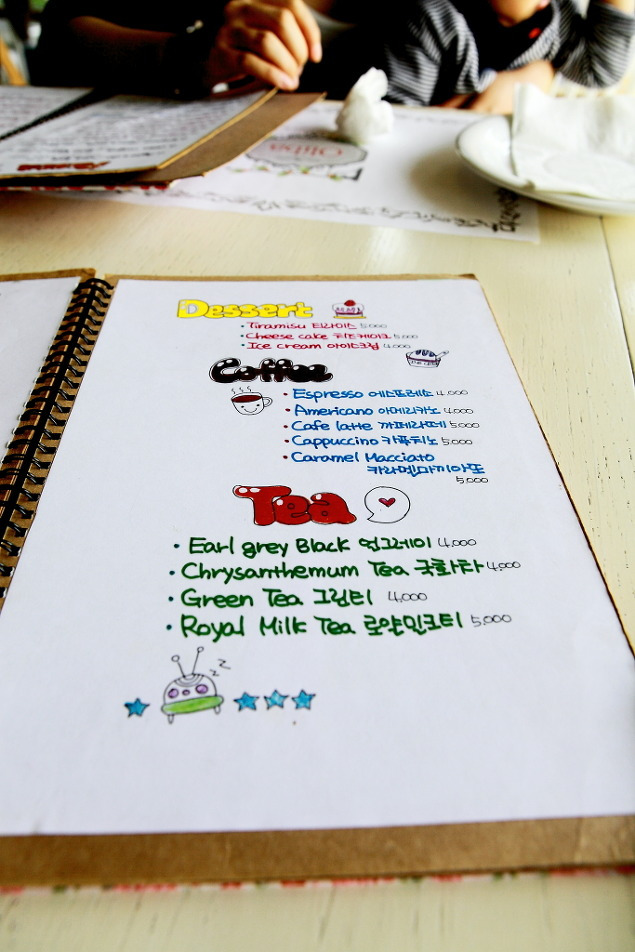 Dessert
Tiramisu 티라미스 5,000
Cheese cake 치즈케이크 5,000
Ice cream 아이스크림 4,000
Coffee
Espresso 에스프레소 4,000
Americano 아메리카노 4,000
Cafe latte 까페라떼 5,000
Cappuccino 카푸치노 5,000
Caramel Macciato
카라멜마끼아또
5,000
Tea
Earl grey Black 얼그레이 4,000
Chrysanthemum Tea 국화차 4,000
Green Tea 그린티 4,000
Royal Milk Tea 로얄밀크티 5,000
z z z